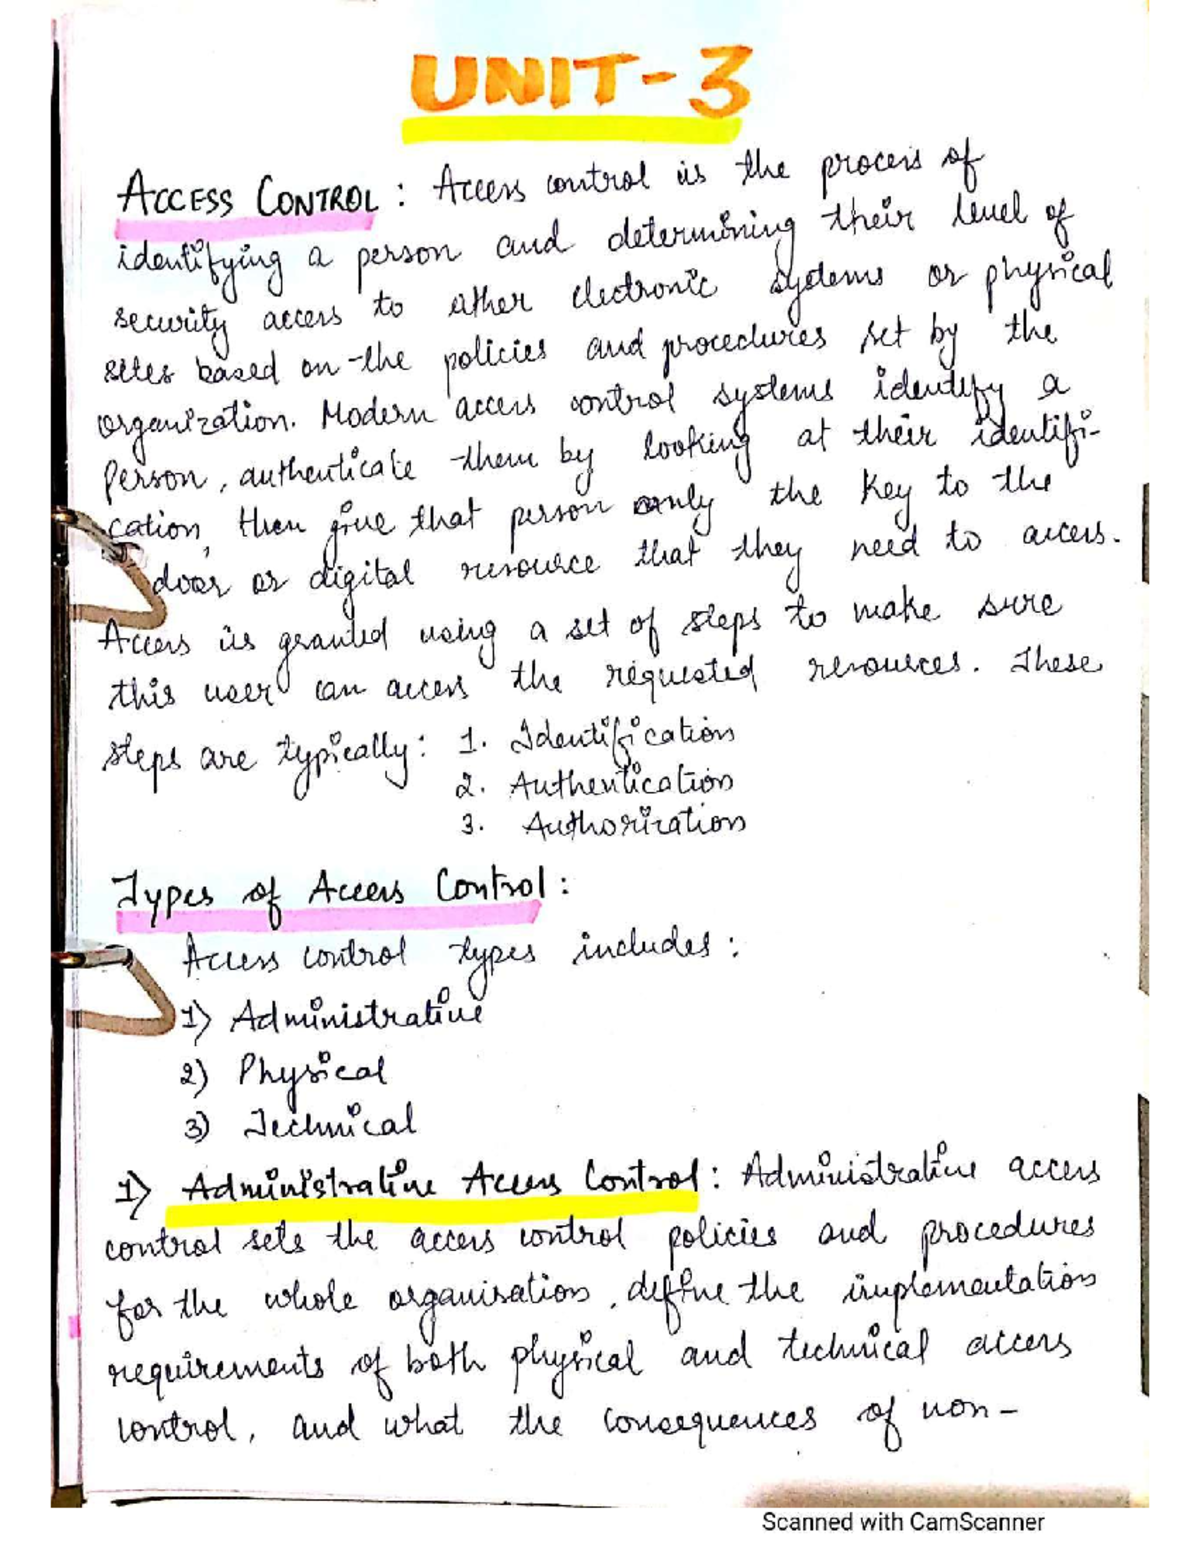 UNIT-3
ACCESS CONTROL : Access control is the process of
identifying a person and determining their level of
security access to either electronic systems or physical
sites based on the policies and procedures set by the
organization. Modern access control systems identify a
person, authenticate them by looking at their identifi-
cation, then give that person only the key to the
door or digital resource that they need to access.
Access is granted using a set of steps to make sure
this user can access the requested resources. These
steps are typically: 1. Identification
2. Authentication
3. Authorization
Types of Access Control :
Access control types includes :
1) Administrative
2) Physical
3) Technical
1) Administrative Access Control : Administrative access
control sets the access control policies and procedures
for the whole organisation, define the implementation
requirements of both physical and technical access
control, and what the consequences of non-
Scanned with CamScanner